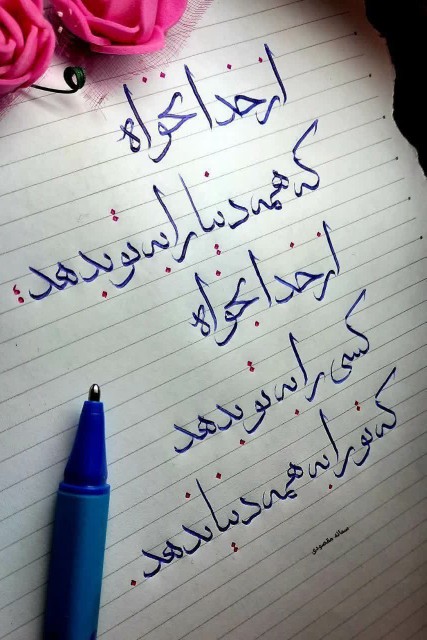 از خدا نخواه
که همه دنیا را به تو بدهد؛
از خدا بخواه
کسی را به تو بدهد
که تو را به همه دنیا ندهد.
سمانه مقصودی